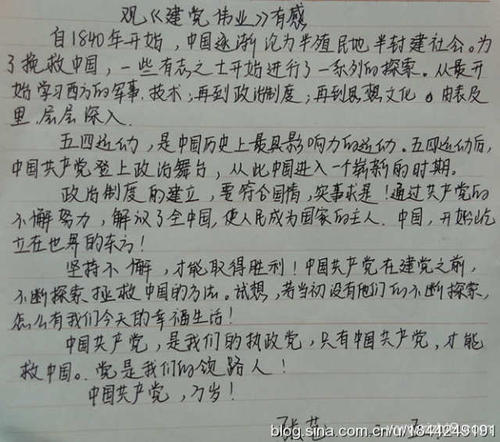 观《建党伟业》有感
自1840年开始，中国逐渐沦为半殖民地半封建社会。为
了挽救中国，一些有志之士开始进行了一系列的探索。从最开
始学习西方的军事、技术，再到政治制度，再到思想文化。由表及
里，层层深入。
五四运动，是中国历史上最具影响力的运动。五四运动后，
中国共产党登上政治舞台，从此中国进入一个崭新的时期。
政治制度的建立，要符合国情，实事求是！通过共产党的
不懈努力，解放了全中国，使人民成为国家的主人。中国，开始屹
立在世界的东方！
坚持不懈，才能取得胜利！中国共产党在建党之前，
不断探索拯救中国的方法。试想，若当初没有他们的不断探索，
怎么有我们今天的幸福生活！
中国共产党，是我们的执政党，只有中国共产党，才能
救中国。党是我们的领路人！
中国共产党，万岁！
blog.sina.com.cn/u/1844249191